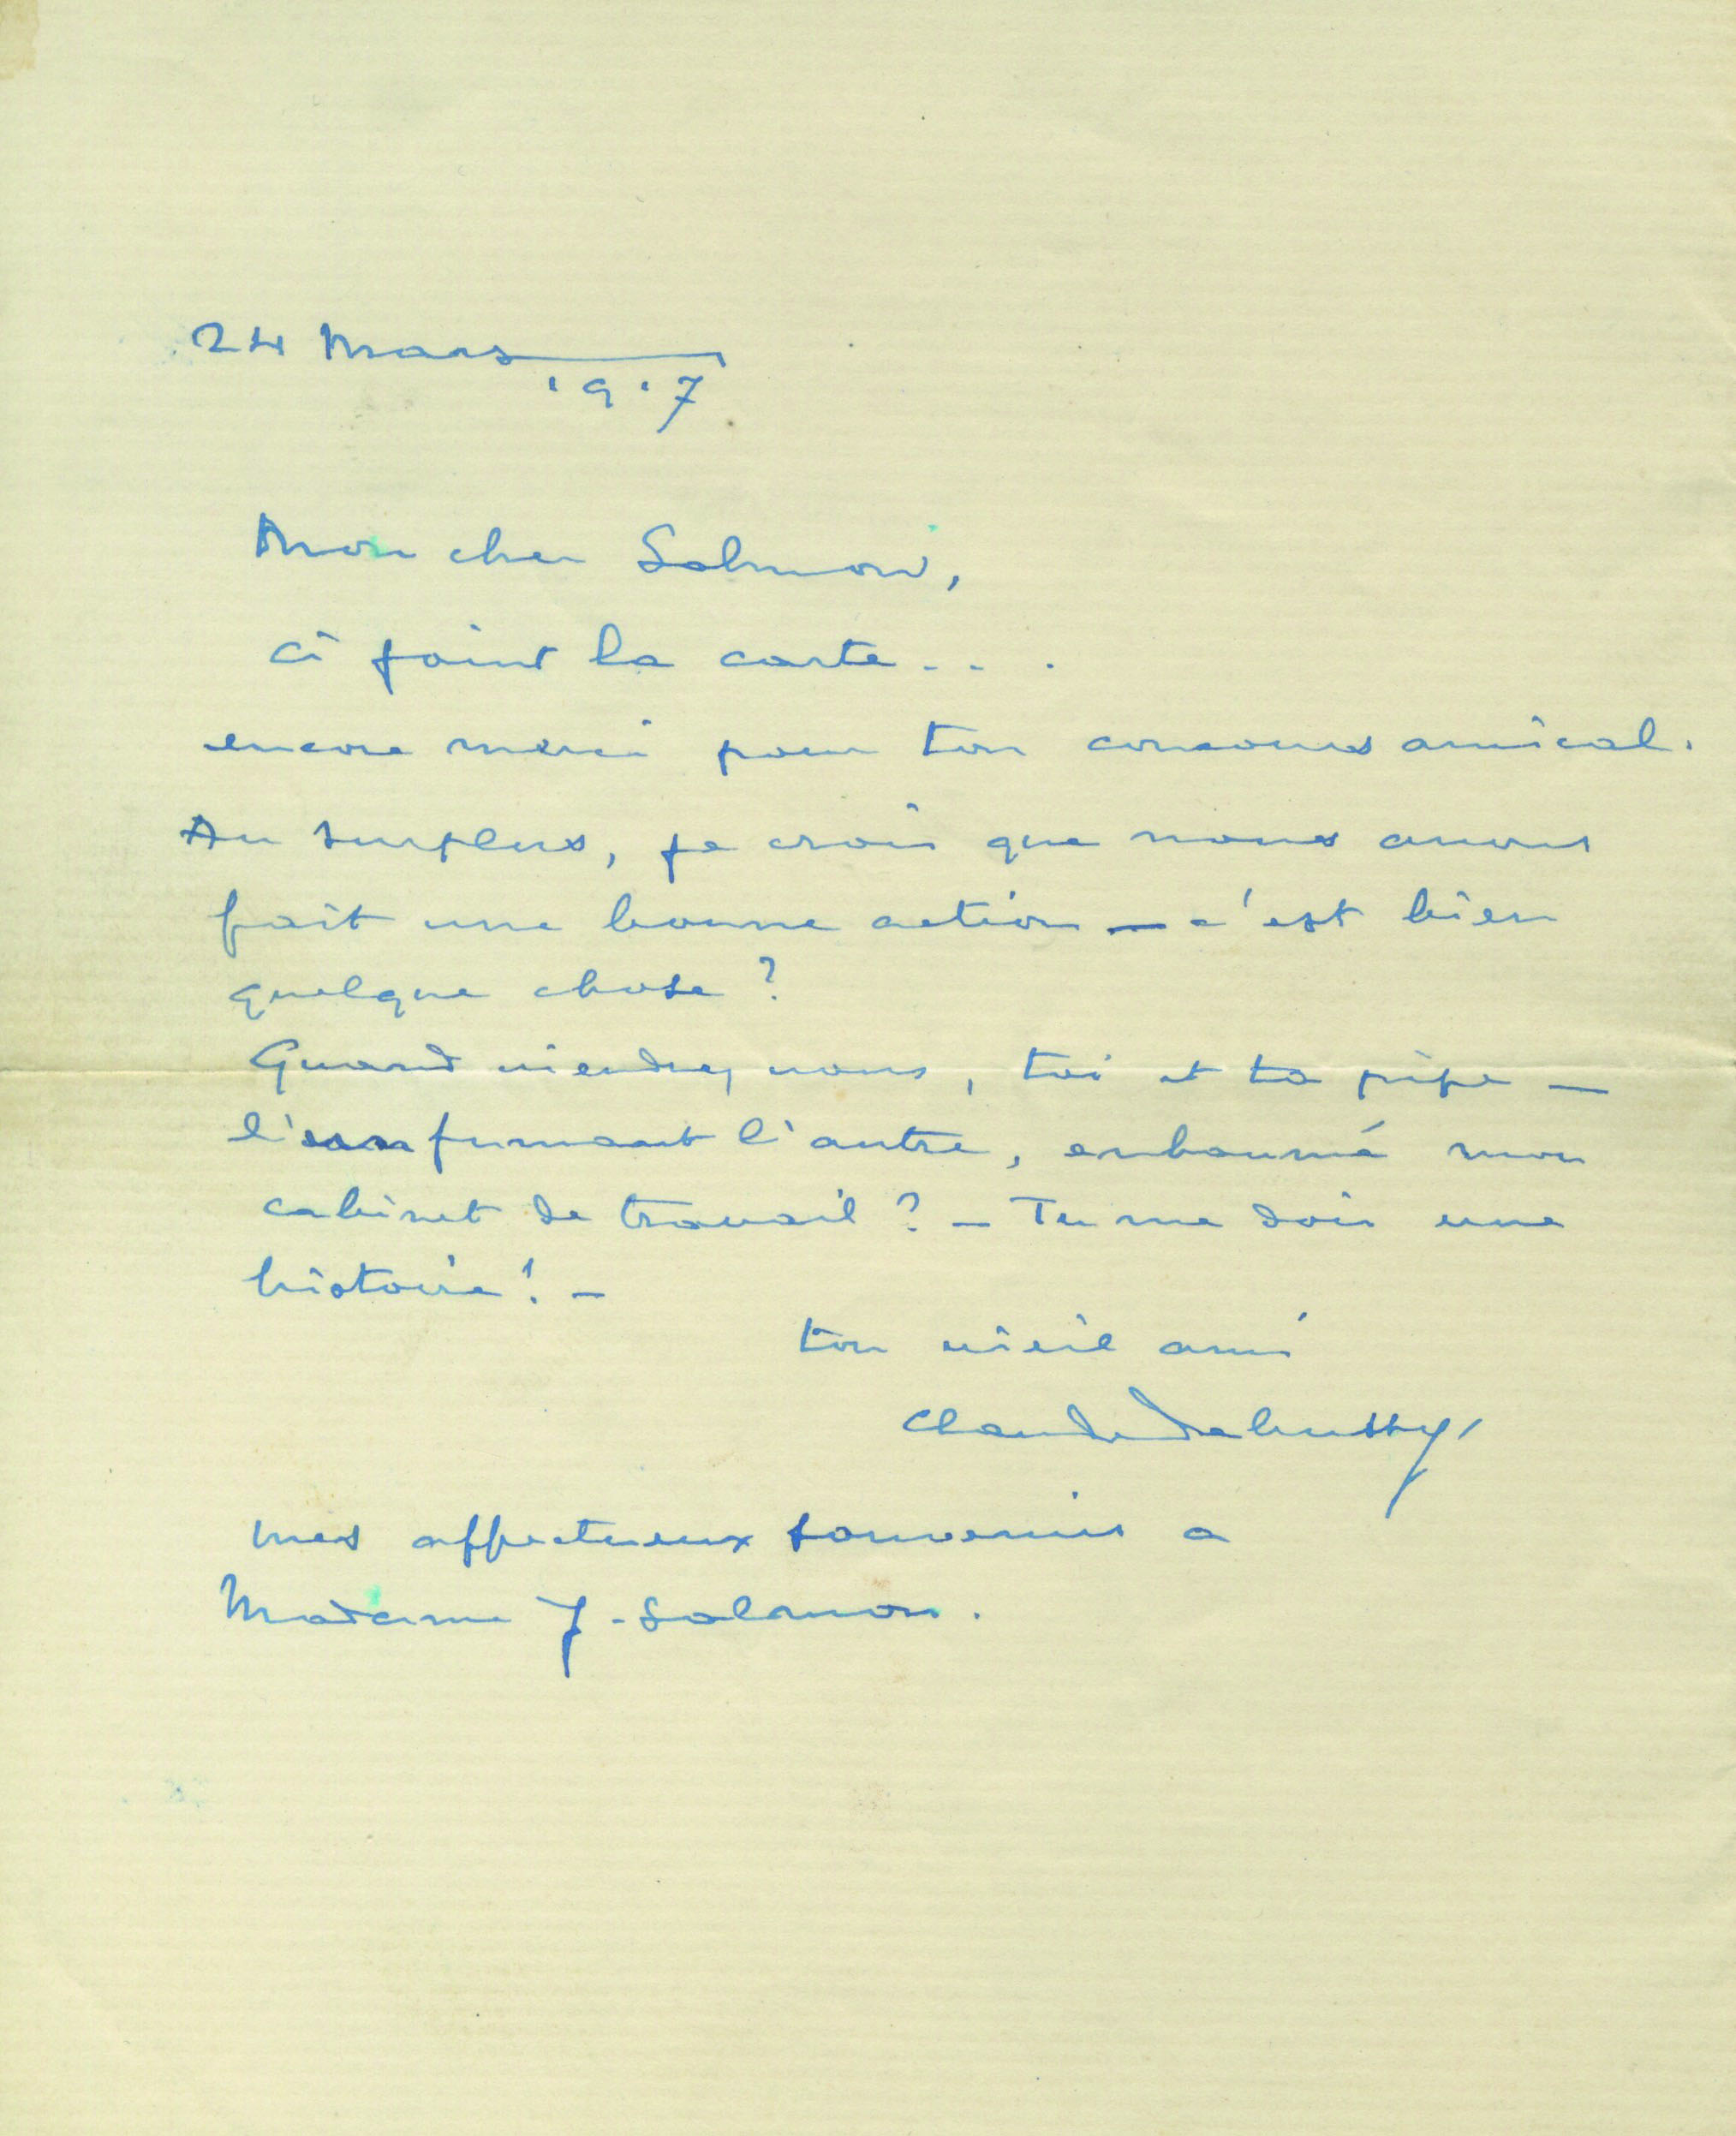 24 Mars
1917
Mon cher Salmon,
Ci joint la carte...
encore merci pour ton concours amical.
Au surplus, je crois que nous avons
fait une bonne action — c'est bien
quelque chose ?
Quand viendrez vous, toi et ta pipe —
l'une fumant l'autre, enbaumé mon
cabinet de travail ? — Tu me dois une
histoire ! —
ton vieil ami
Claude Debussy
mes affectueux souvenirs a
Madame J. Salmon.